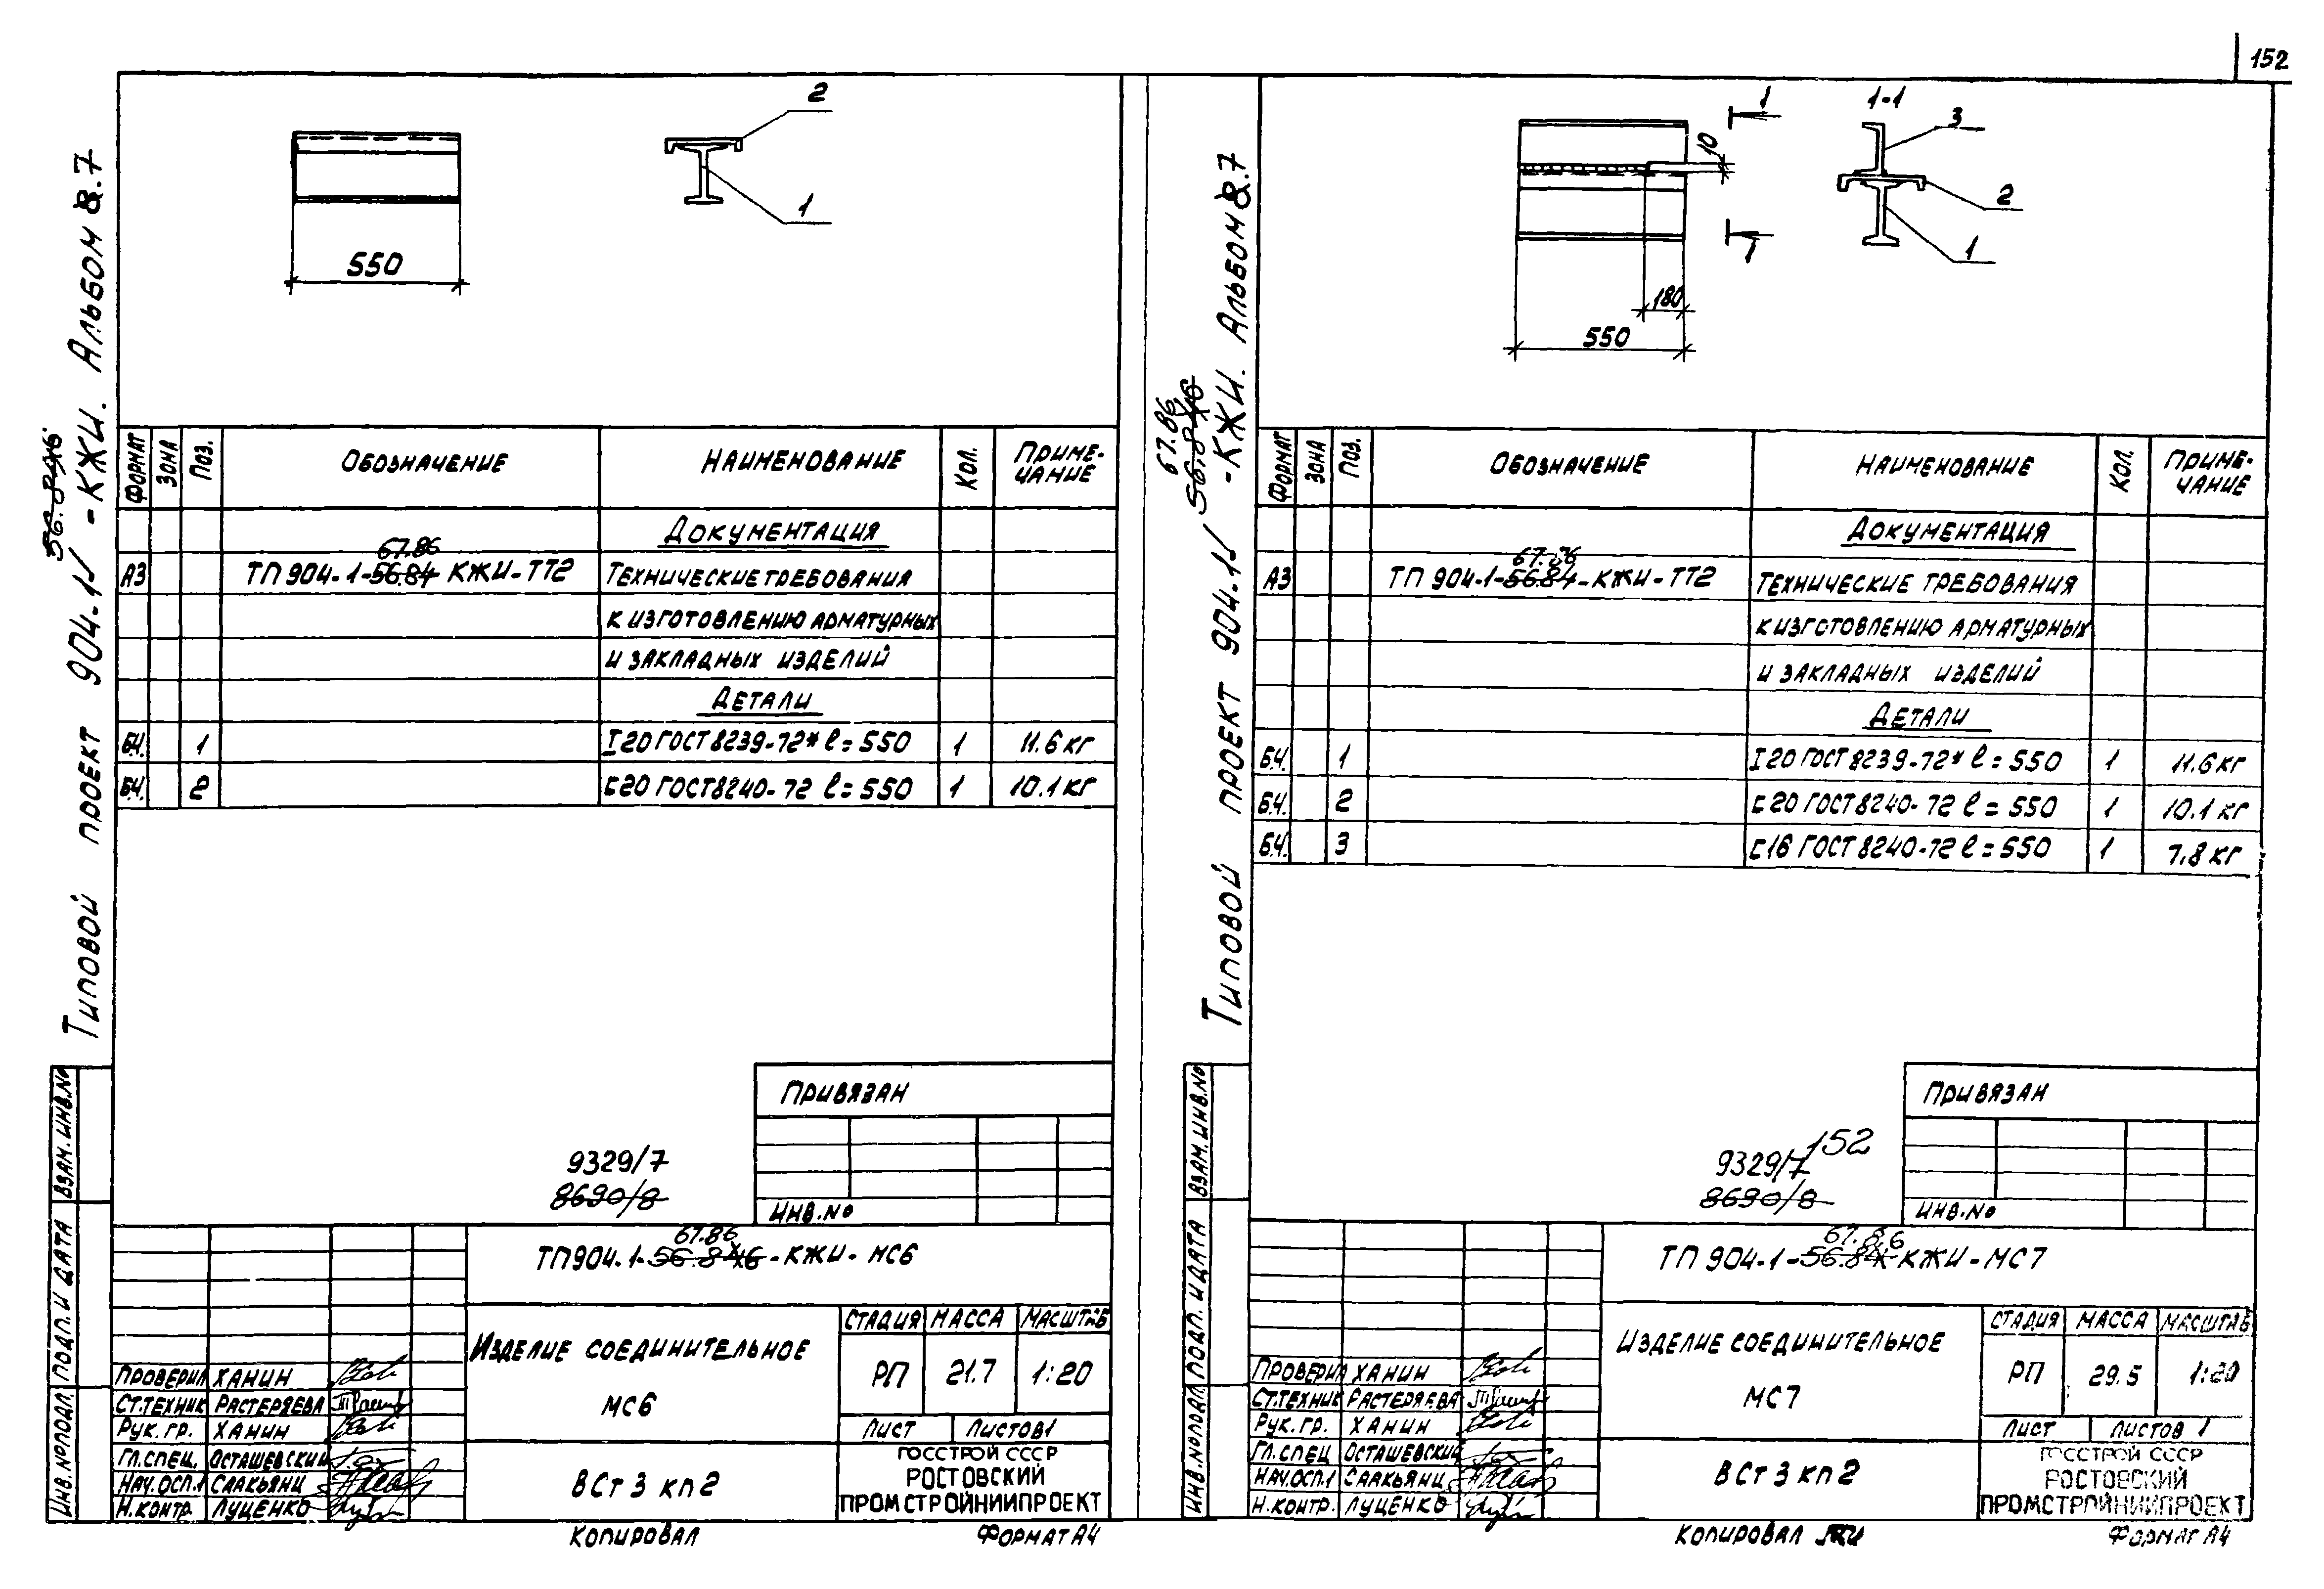 152
Типовой проект 904-1 -КЖИ. Альбом 8.7
56.84
2
1
550
Формат Зона Поз. Обозначение Наименование Кол. Приме-
чание
Документация
67.86
А3 ТП 904-1-56.84 КЖИ-ТТ2 Технические требования
к изготовлению арматурных
и закладных изделий
Детали
Б.Ч. 1 I20 ГОСТ 8239-72* l=550 1 11.6 кг
Б.Ч. 2 [20 ГОСТ 8240-72 l=550 1 10.1 кг
Привязан
9329/7
8690/8
Инв.№
67.86
ТП 904-1-56.84-КЖИ-МС6
Изделие соединительное
МС6
Стадия Масса Масштаб
РП 21.7 1:20
Лист Листов 1
Проверил Ханин
Ст.техник Растеряева
Рук.гр. Ханин
Гл.спец. Осташевский
Нач.ОСП.1 Саакьянц
Н.контр. Луценко
ВСт3кп2
Госстрой СССР
Ростовский
Промстройниипроект
Взам.инв.№
Подп. и дата
Инв.№подл.
Копировал Формат А4
Типовой проект 904-1 -КЖИ. Альбом 8.7
67.86
56.84
1 1-1
3
10
2
1
1
180
550
Формат Зона Поз. Обозначение Наименование Кол. Приме-
чание
Документация
67.86
А3 ТП 904-1-56.84-КЖИ-ТТ2 Технические требования
к изготовлению арматурных
и закладных изделий
Детали
Б.Ч. 1 I20 ГОСТ 8239-72* l=550 1 11.6 кг
Б.Ч. 2 [20 ГОСТ 8240-72 l=550 1 10.1 кг
Б.Ч. 3 [16 ГОСТ 8240-72 l=550 1 7.8 кг
Привязан
152
9329/7
8690/8
Инв.№
67.86
ТП 904-1-56.84-КЖИ-МС7
Изделие соединительное
МС7
Стадия Масса Масштаб
РП 29.5 1:20
Лист Листов 1
Проверил Ханин
Ст.техник Растеряева
Рук.гр. Ханин
Гл.спец Осташевский
Нач.ОСП.1 Саакьянц
Н.контр. Луценко
ВСт3кп2
Госстрой СССР
Ростовский
Промстройниипроект
Взам.инв.№
Подп. и дата
Инв.№подл.
Копировал Формат А4